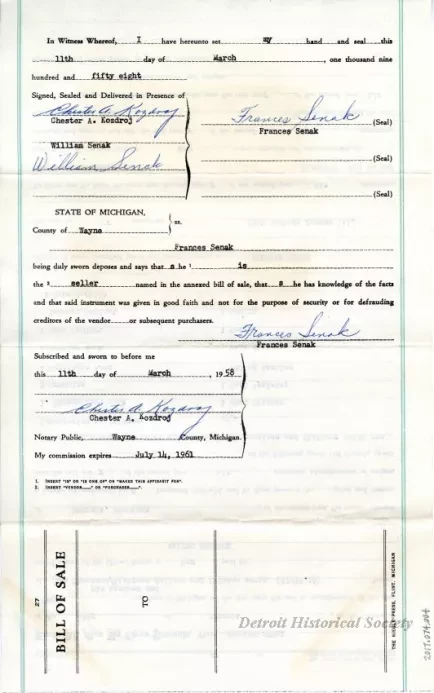 In Witness Whereof, I have hereunto set my hand and seal this
11th day of March, one thousand nine
hundred and fifty eight
Signed, Sealed and Delivered in Presence of
Chester A. Kozdroj
Chester A. Kozdroj
Frances Senak (Seal)
Frances Senak
William Senak
William Senak
(Seal)
(Seal)
STATE OF MICHIGAN,
ss.
County of Wayne
Frances Senak
being duly sworn deposes and says that s he 1 is
the 2 seller named in the annexed bill of sale, that s he has knowledge of the facts
and that said instrument was given in good faith and not for the purpose of security or for defrauding
creditors of the vendor or subsequent purchasers.
Frances Senak
Frances Senak
Subscribed and sworn to before me
this 11th day of March, 1958
Chester A. Kozdroj
Chester A. Kozdroj
Notary Public, Wayne County, Michigan.
My commission expires July 14, 1961
1. INSERT "IS" OR "IS ONE OF" OR "MAKES THIS AFFIDAVIT FOR".
2. INSERT "VENDOR" OR "PURCHASER".
27
BILL OF SALE
TO
THE PRESS, FLINT, MICHIGAN
Detroit Historical Society
2017.074.004